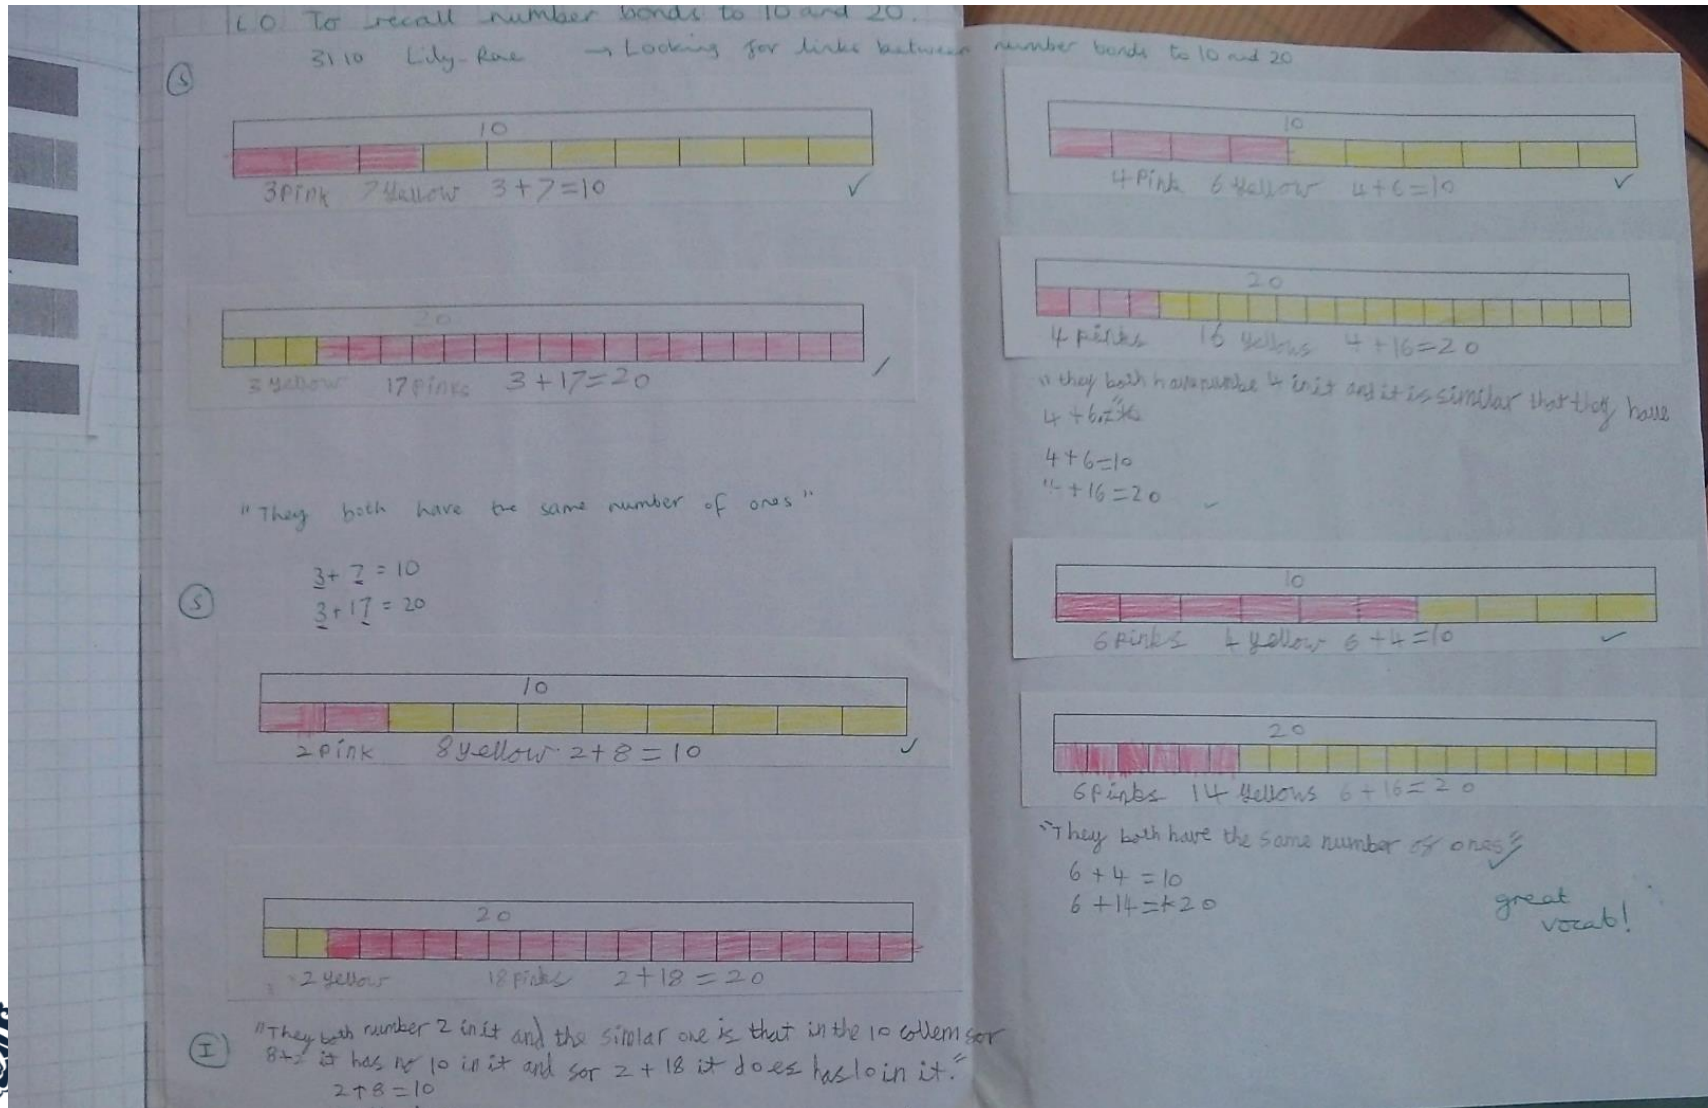 L.O. To recall number bonds to 10 and 20.
31 10 Lily-Rae → Looking for links between number bonds to 10 and 20
S
10
3 pink 7 yellow 3+7=10
20
3 yellow 17 pinks 3+17=20
"They both have the same number of ones"
3+7=10
3+17=20
S
10
2 pink 8 yellow 2+8=10
20
2 yellow 18 pinks 2+18=20
I
"They both number 2 in it and the simlar one is that in the 10 collem for
it has no 10 in it and for 2+18 it does has 10 in it."
2+8=10
10
4 Pink 6 yellow 4+6=10
20
4 pinks 16 yellows 4+16=20
"they both have numbe 4 in it and it is similar that they have
4+6
4+6=10
4+16=20
10
6 pinks 4 yellow 6+4=10
20
6 pinks 14 yellows 6+16=20
"They both have the same number of ones"
6+4=10
6+14=20
great
vocab!